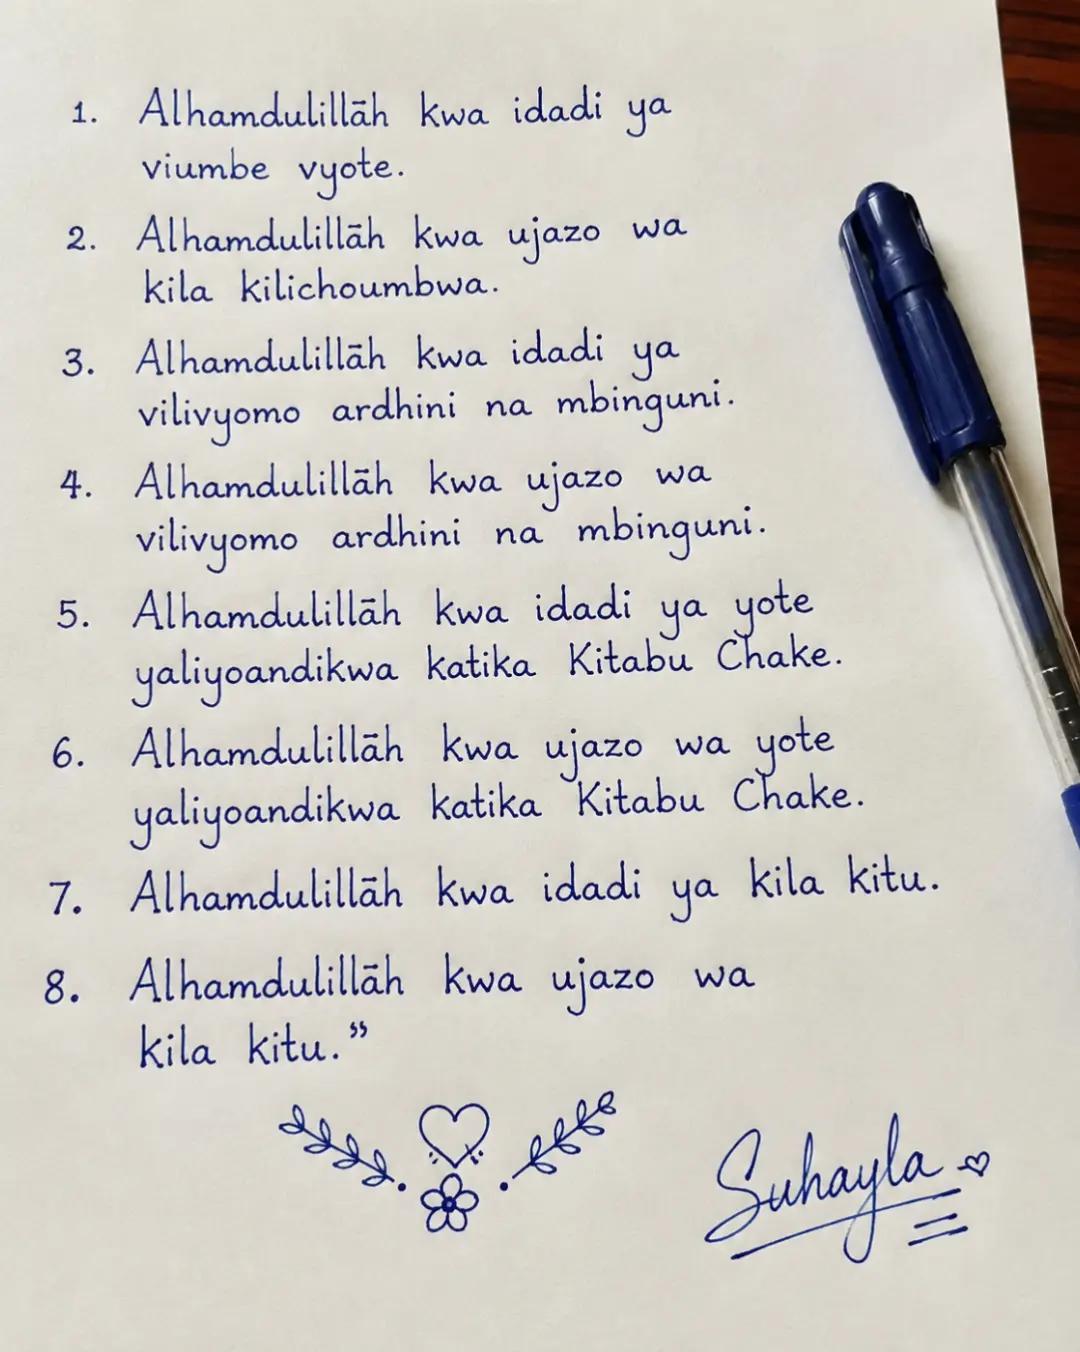 1. Alhamdulillāh kwa idadi ya
viumbe vyote.
2. Alhamdulillāh kwa ujazo wa
kila kilichoumbwa.
3. Alhamdulillāh kwa idadi ya
vilivyomo ardhini na mbinguni.
4. Alhamdulillāh kwa ujazo wa
vilivyomo ardhini na mbinguni.
5. Alhamdulillāh kwa idadi ya yote
yaliyoandikwa katika Kitabu Chake.
6. Alhamdulillāh kwa ujazo wa yote
yaliyoandikwa katika Kitabu Chake.
7. Alhamdulillāh kwa idadi ya kila kitu.
8. Alhamdulillāh kwa ujazo wa
kila kitu.”
Suhayla